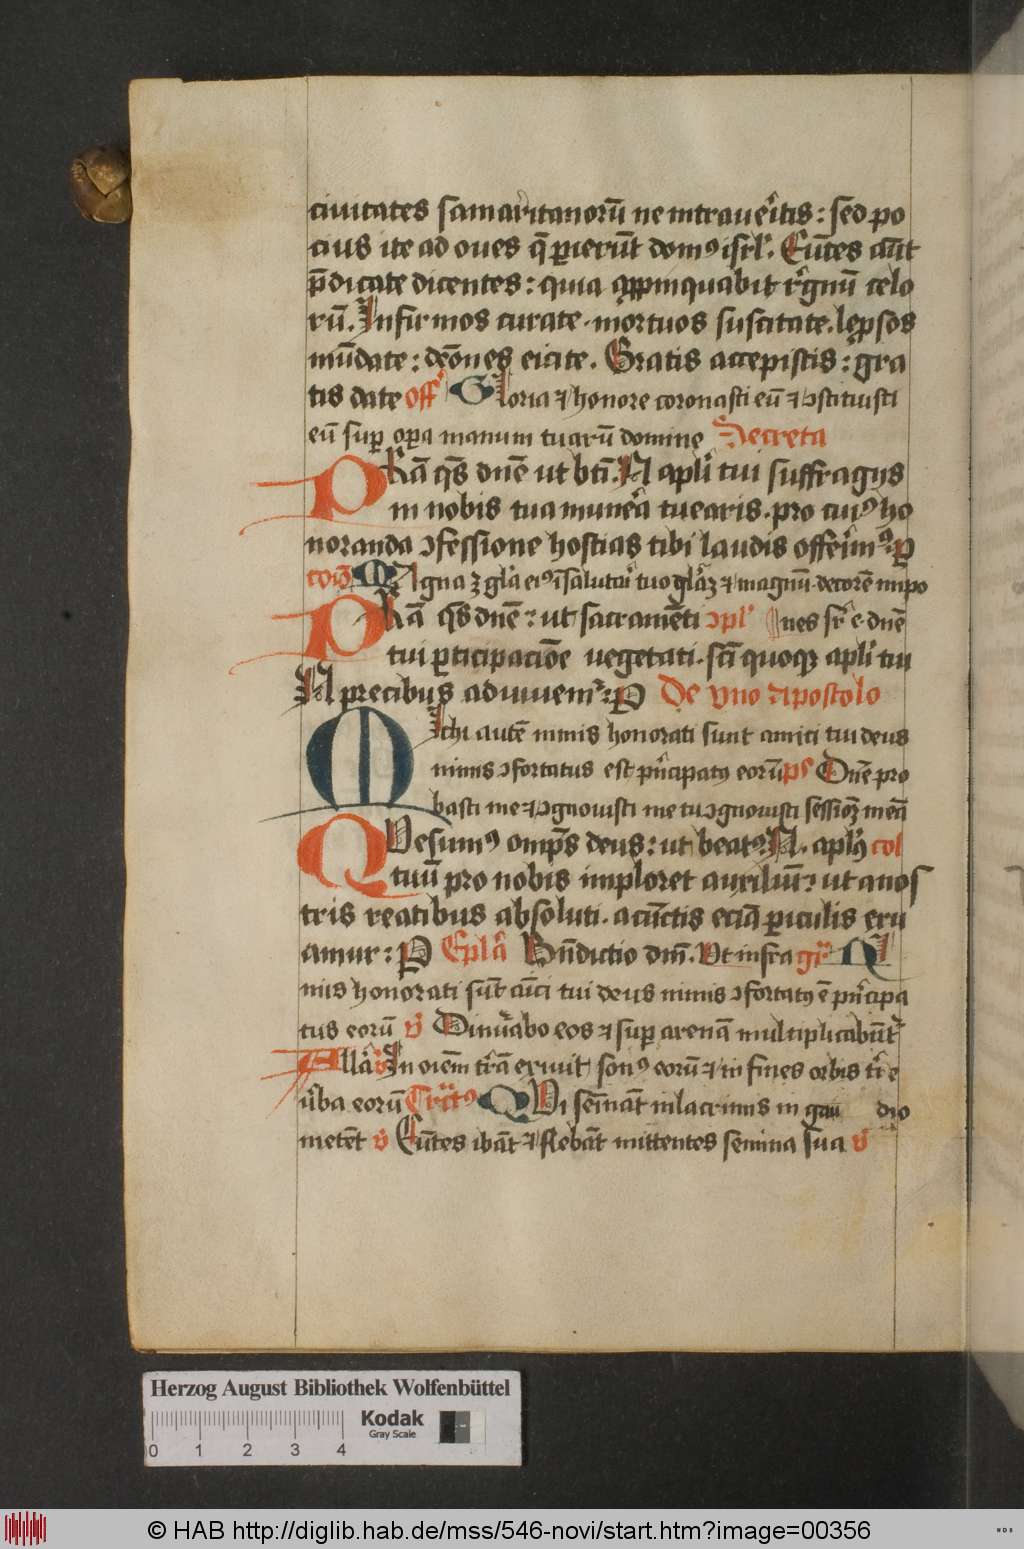 ciuitates samaritanorū ne intraueritis: sed po
cius ite ad oues q̄ perierūt domꝰ isrl'. Eūtes aūt
p̄dicate dicentes: quia appinquabit regnū celo
rū. Infirmos curate. mortuos suscitate. leprsos
mūdate: demōes eicite. Gratis accepistis: gra
tis date off Gloria ⁊ honore coronasti eū ⁊ ꝯstituisti
eū sup opa manum tuarū domine Secreta
PRā qs dnē ut bti. N apli tui suffragijs
in nobis tua munera tuearis. pro cuiꝰ ho
noranda ꝯfessione hostias tibi laudis offerimꝰ. P
coō Magna ꝫ gla eiꝰ ī salutari tuo glaꝫ ⁊ magnū decorē impo
PRā qs dnē: ut sacramēti ꝯpl' nes sr e dnē
tui pticipacioē vegetati. sci quoqꝫ apli tui
N precibus adiuuemr: P De vno Apostolo
Michi autē nimis honorati sunt amici tui deus
nimis ꝯfortatus est prīcipatꝰ eorū ps Dnē pro
basti me ⁊ ꝯgnouisti me tu ꝯgnouisti sessionē meā
QVesumꝰ omps deus: ut beatꝰ. N. aplꝰ col
tuū pro nobis imploret auxiliū: ut a nos
tris reatibus absoluti. a cūctis eciā piculis eru
amur: P Epla Bn̄dictio dni. Vt infra gr Ni
mis honorati sūt amici tui deus nimis ꝯfortatꝰ ē prīcipa
tus eorū v Dinūabo eos ⁊ sup arenam multiplicabūtr
Alla v In oēm trā exiuit sonꝰ eorū ⁊ in fines orbis tre
ūba eorū Trctꝰ QVi semīāt in lacrimis in gau dio
metēt v Eūtes ibāt ⁊ flebāt mittentes semina sua v
Herzog August Bibliothek Wolfenbüttel
Kodak
Gray Scale
0 1 2 3 4
© HAB http://diglib.hab.de/mss/546-novi/start.htm?image=00356